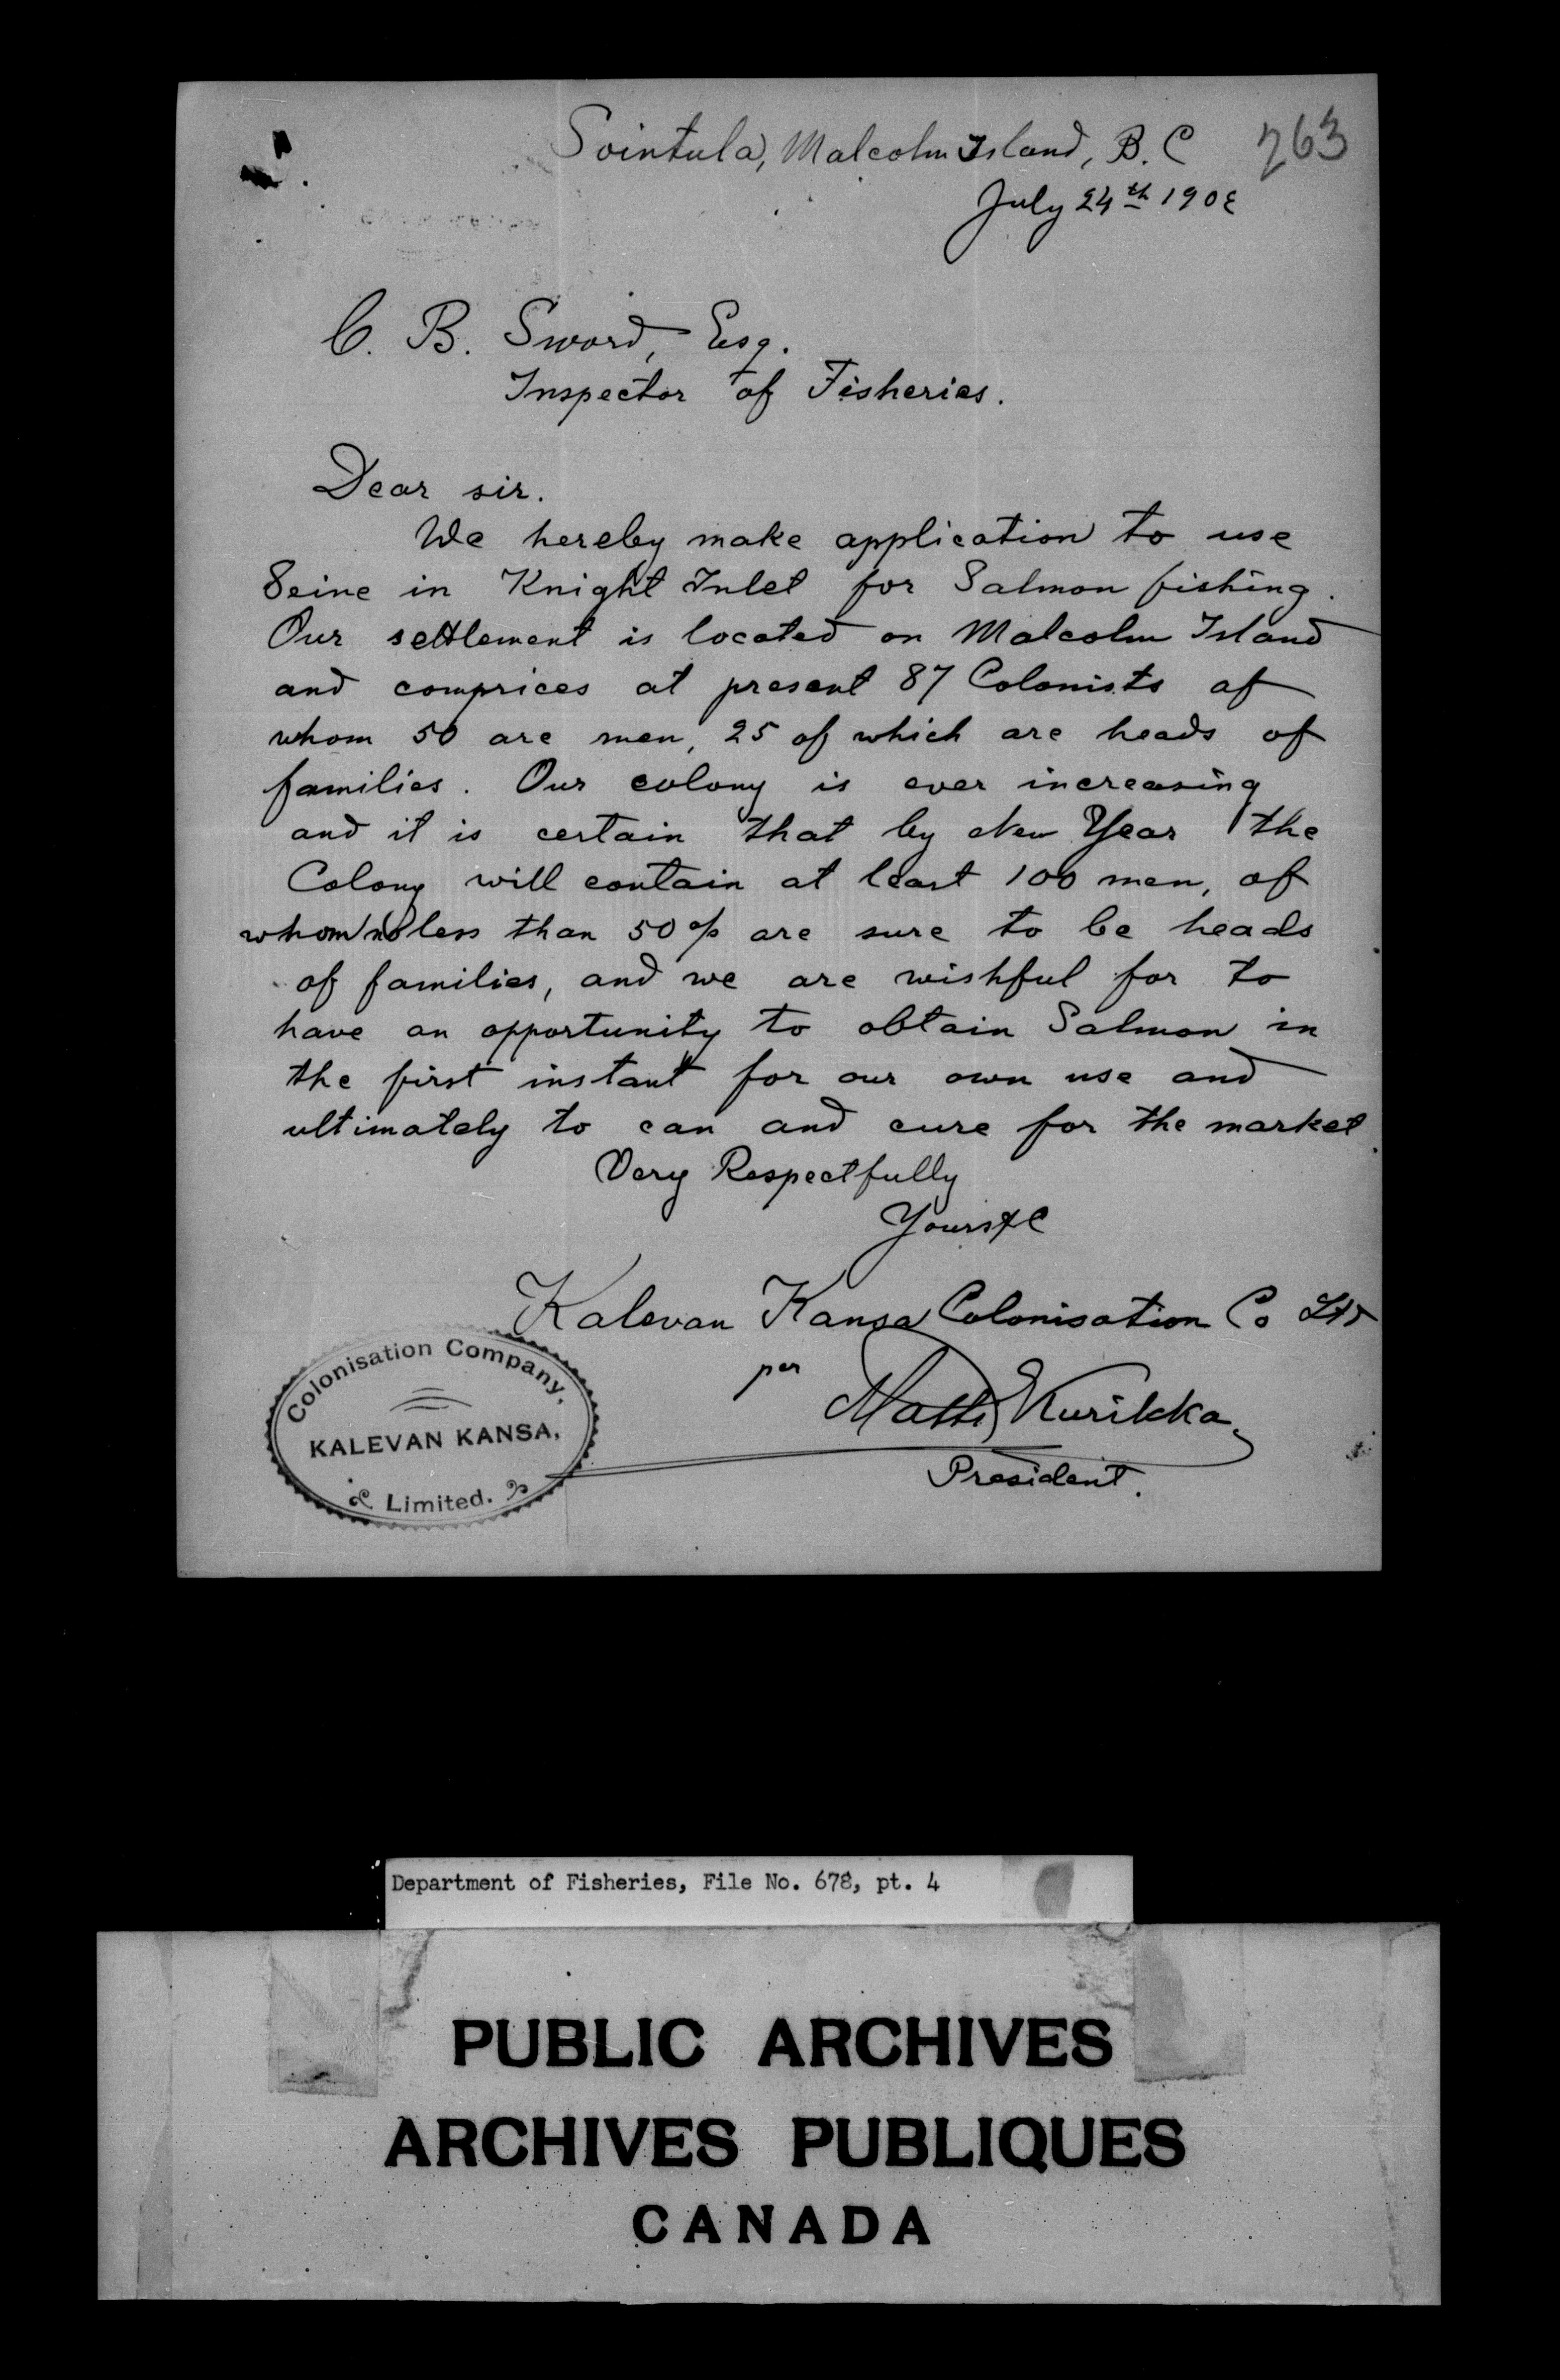 Sointula, Malcolm Island, B. C
263
July 24th 1902
C. B. Sword, Esq.
Inspector of Fisheries.
Dear sir.
We hereby make application to use
Seine in Knight Inlet for Salmon fishing.
Our settlement is located on Malcolm Island
and comprices at present 87 Colonists of
whom 50 are men, 25 of which are heads of
families. Our colony is ever increasing
and it is certain that by New Year the
Colony will contain at least 100 men, of
whom no less than 50 % are sure to be heads
of families, and we are wishful for to
have an opportunity to obtain Salmon in
the first instant for our own use and
ultimately to can and cure for the market
Very Respectfully
Yours &C
Kalevan Kansa Colonisation Co Ltd
per
Matti Kurikka
President.
Colonisation Company,
KALEVAN KANSA,
Limited.
Department of Fisheries, File No. 678, pt. 4
PUBLIC ARCHIVES
ARCHIVES PUBLIQUES
CANADA